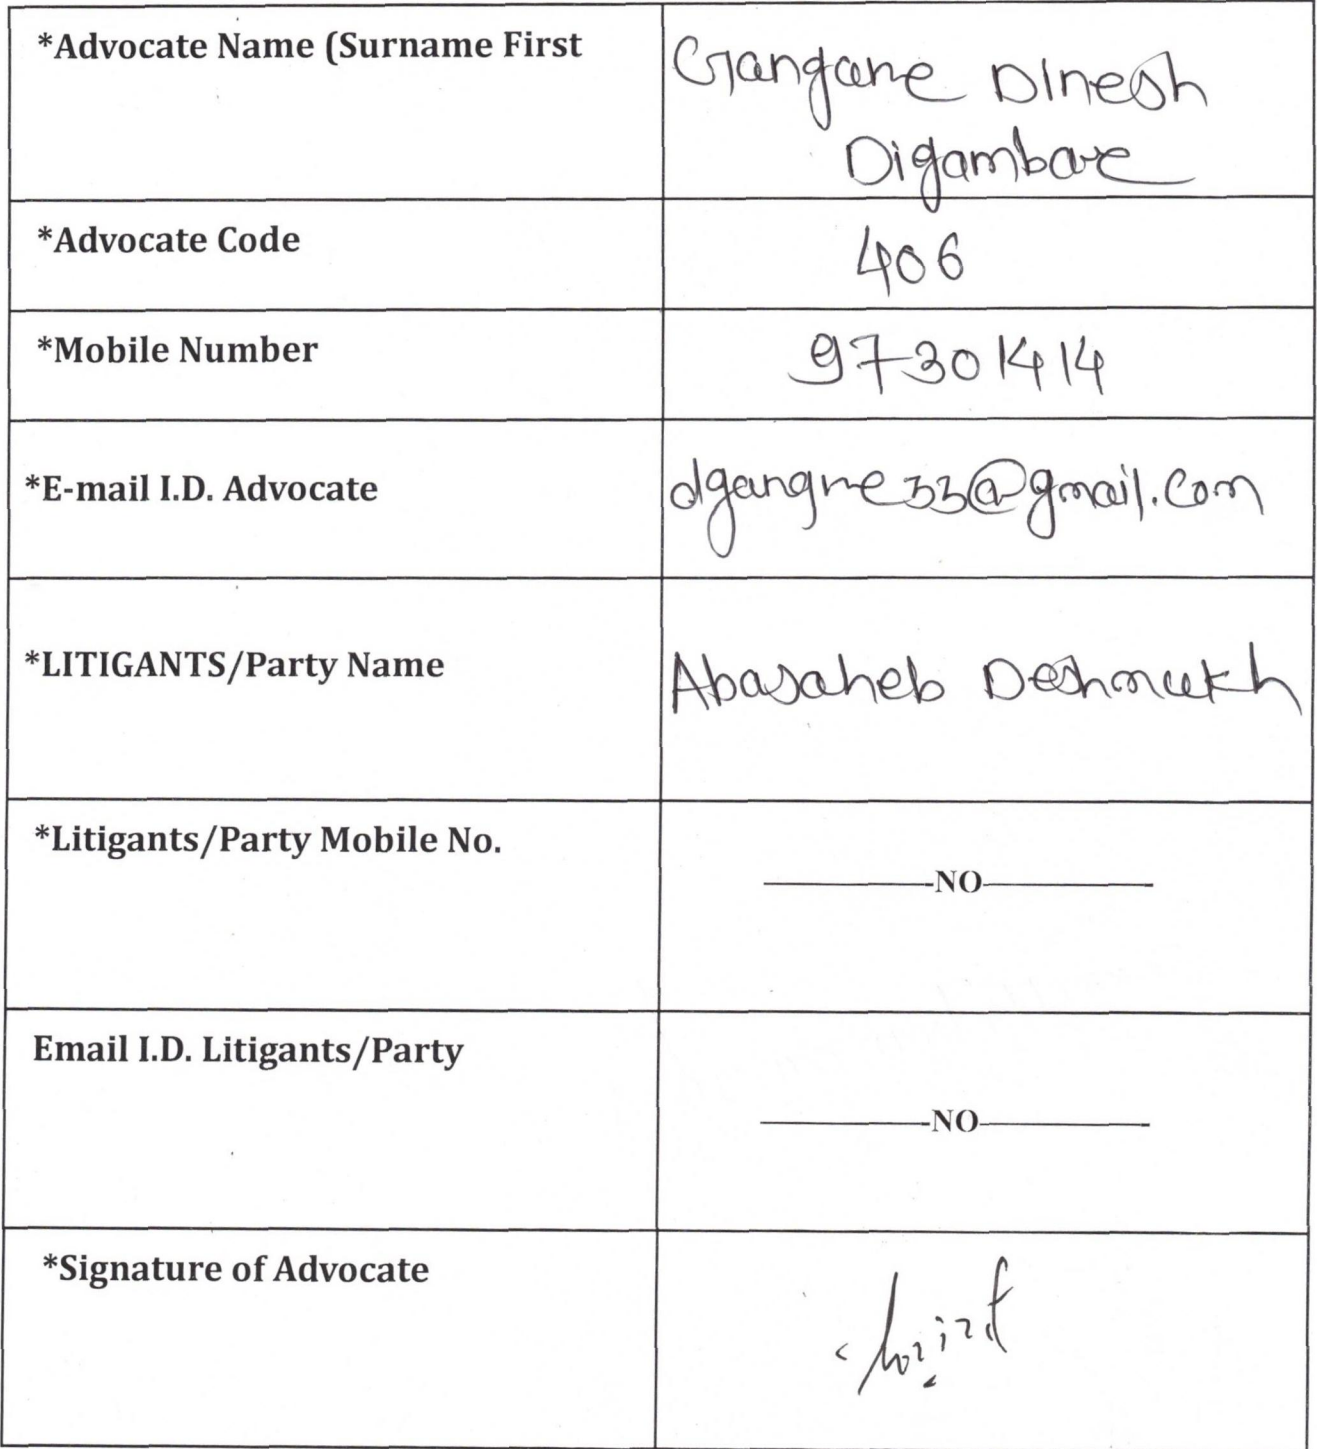 *Advocate Name (Surname First
Gangane Dinesh
Digambar
*Advocate Code
406
*Mobile Number
97301414
*E-mail I.D. Advocate
dgangne33@gmail.com
*LITIGANTS/Party Name
Abasaheb Deshmukh
*Litigants/Party Mobile No.
-NO-
Email I.D. Litigants/Party
-NO-
*Signature of Advocate